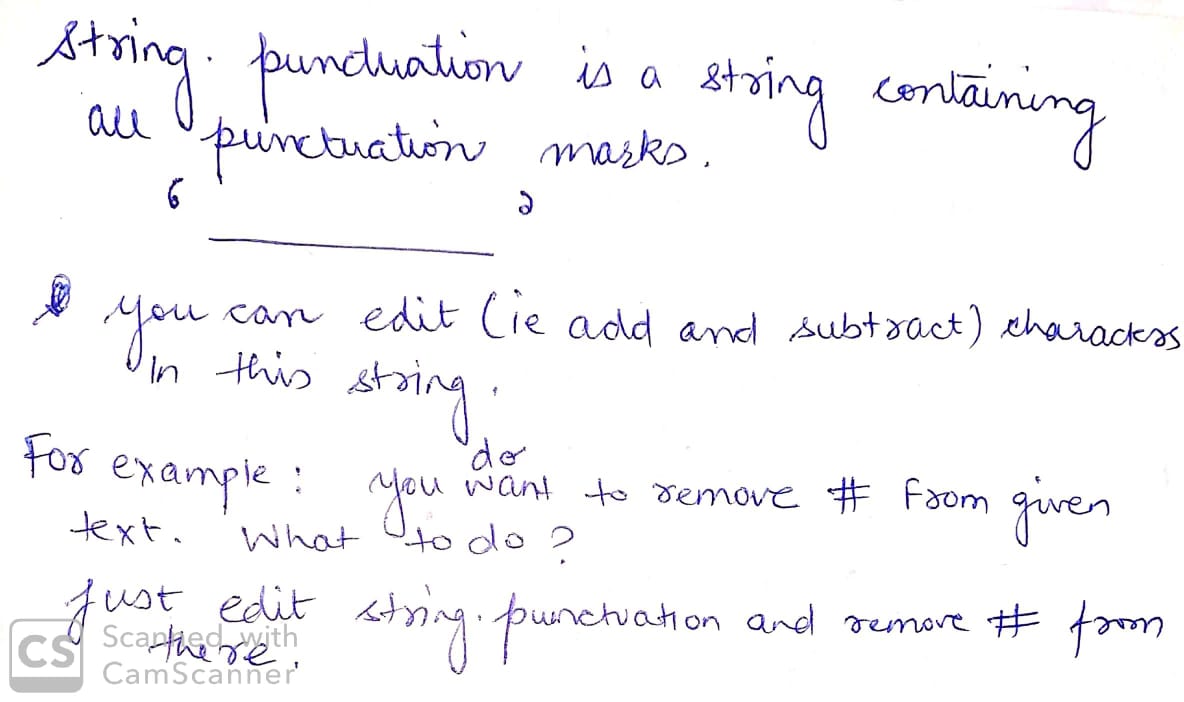 string. punctuation is a string containing
all punctuation marks.
6 2
you can edit (ie add and subtract) characters
in this string.
do
For example : you want to remove # from given
text. What to do ?
Just edit string. punctuation and remove # from
there.
CS Scanned with
CamScanner